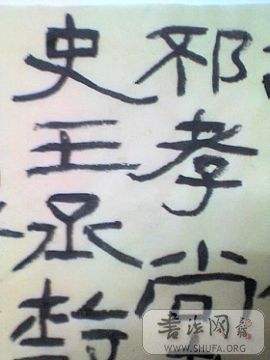 邪孝堂
史王丞
書法网
WWW.SHUFA.ORG